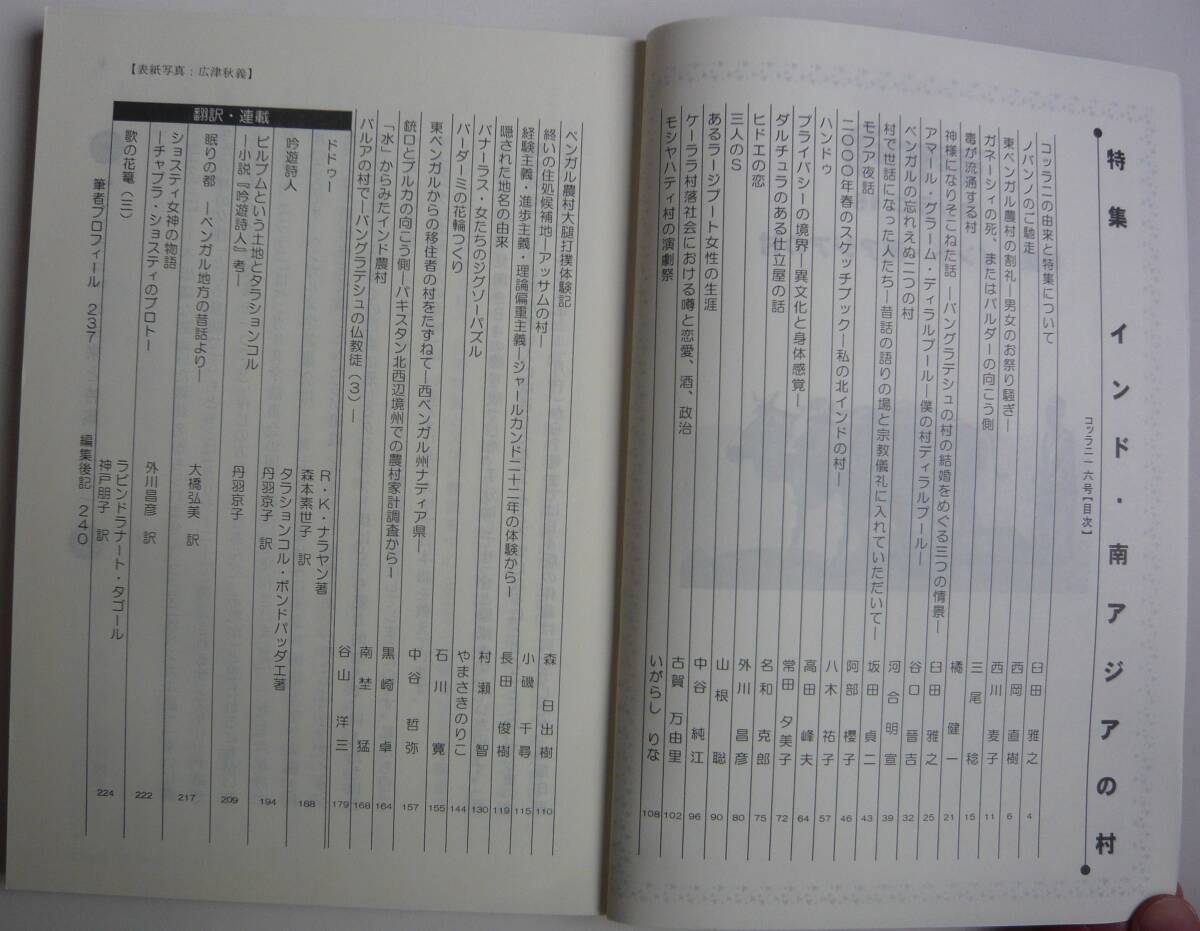 特集 インド・南アジアの村
コッラニ一六号【目次】
コッラニの由来と特集について 臼田 雅之 4
ノバンノのご馳走 西岡 直樹 6
東ベンガル農村の割礼―男女のお祭り騒ぎ― 西川 麦子 11
ガネーシィの死、またはパルダーの向こう側 三尾 稔 15
毒が流通する村 橘 健一 21
神様になりそこねた話 ―バングラデシュの村の結婚をめぐる三つの情景― 臼田 雅之 25
アマール・グラーム・ディラルプール―僕の村ディラルプール― 谷口 晉吉 32
ベンガルの忘れえぬ二つの村 河合 明宣 39
村で世話になった人たち―昔話の語りの場と宗教儀礼に入れていただいて― 坂田 貞二 43
モファ夜話 阿部 櫻子 46
二〇〇〇年春のスケッチブック―私の北インドの村― 八木 祐子 57
ハンドゥ 高田 峰夫 64
プライバシーの境界―異文化と身体感覚― 常田 夕美子 72
ダルチュラのある仕立屋の話 名和 克郎 75
ヒドエの恋 外川 昌彦 80
三人のS 山根 聡 90
あるラージプート女性の生涯 中谷 純江 96
ケーララ村落社会における噂と恋愛、酒、政治 古賀 万由里 102
モシャハティ村の演劇祭 いがらし りな 108
ベンガル農村大腿打撲体験記 森 日出樹 110
終いの住処候補地―アッサムの村― 小磯 千尋 115
経験主義・進歩主義・理論偏重主義―ジャールカンド二十二年の体験から― 長田 俊樹 119
隠された地名の由来 村瀬 智 130
バナーラス・女たちのジグソーパズル やまさきのりこ 144
バーダーミの花輪つくり 石川 寛 155
東ベンガルからの移住者の村をたずねて―西ベンガル州ナディア県― 中谷 哲弥 157
銃口とブルカの向こう側―パキスタン北西辺境州での農村家計調査から― 黒崎 卓 164
「水」からみたインド農村 南埜 猛 168
バルアの村で―バングラデシュの仏教徒（3）― 谷山 洋三 179
翻訳・連載
ドドゥー R・K・ナラヤン著
森本素世子 訳 188
吟遊詩人 タラションコル・ボンドパッダエ著
丹羽京子 訳 194
ビルブムという土地とタラションコル
―小説『吟遊詩人』考― 丹羽京子 209
眠りの都 ―ベンガル地方の昔話より― 大橋弘美 訳 217
ショスティ女神の物語
―チャプラ・ショスティのブロト― 外川昌彦 訳 222
歌の花篭（三） ラビンドラナート・タゴール
神戸朋子 訳 224
筆者プロフィール 237 編集後記 240
【表紙写真：広津秋義】